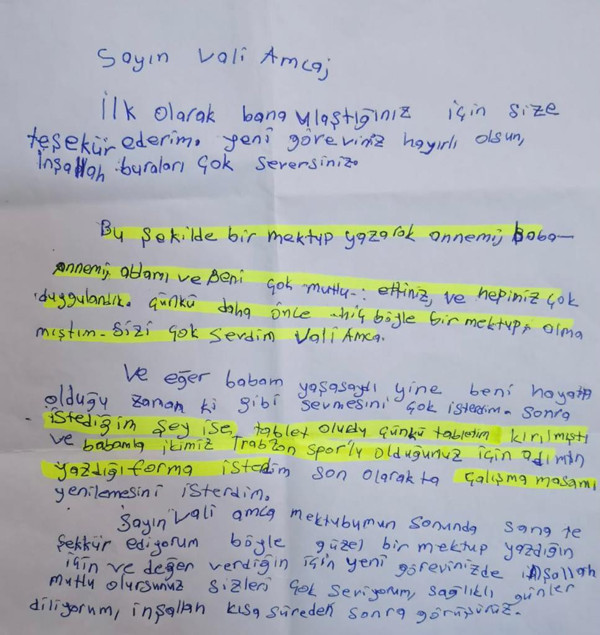 Sayın Vali Amcaj
İlk olarak bana ulaştığınız için size
teşekür ederim. yeni göreviniz hayırlı olsun,
İnşallah buraları çok seversiniz.
Bu şekilde bir mektup yazarak annemi, baba-
annemi, ablamı ve Beni çok mutlu ettiniz, ve hepimiz çok
duygulandık. Çünkü daha önce hiç böyle bir mektup, alma
mıştım. Sizi çok Sevdim Vali Amca.
Ve eğer babam yaşasaydı yine beni hayatta
olduğu zaman ki gibi sevmesini çok isterdim. Sonra
istediğim şey ise, tablet olurdu çünkü tabletim kırılmıştı
ve babamla ikimiz Trabzon Spor'lu olduğunuz için adımın
yazdığı forma isterdim son olarakta çalışma masamı
yenilemesini isterdim.
Sayın Vali amca mektubumun sonunda sana te
şekkür ediyorum böyle güzel bir mektup yazdığın
için ve değer verdiğin için yeni görevinizde inşallah
mutlu olursunuz sizleri çok seviyorum, sağlıklı günler
diliyorum, inşallah kısa süreden sonra görüşürüz.